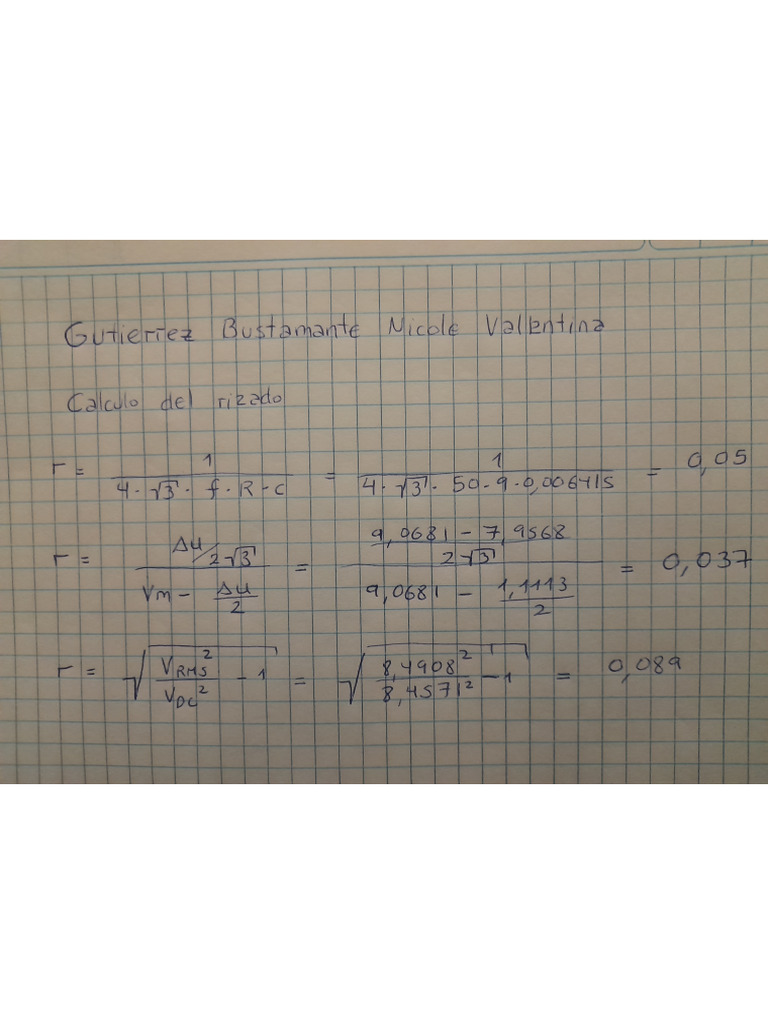 Gutierrez Bustamante Nicole Valentina
Calculo del rizado
r = 1 / (4 · √3 · f · R · C) = 1 / (4 · √3 · 50 · 9 · 0,006415) = 0,05
r = (Δu / 2√3) / (Vm - Δu / 2) = ((9,0681 - 7,9568) / 2√3) / (9,0681 - 1,1113 / 2) = 0,037
r = √(V_RMS² / V_DC² - 1) = √(8,4908² / 8,4571² - 1) = 0,089